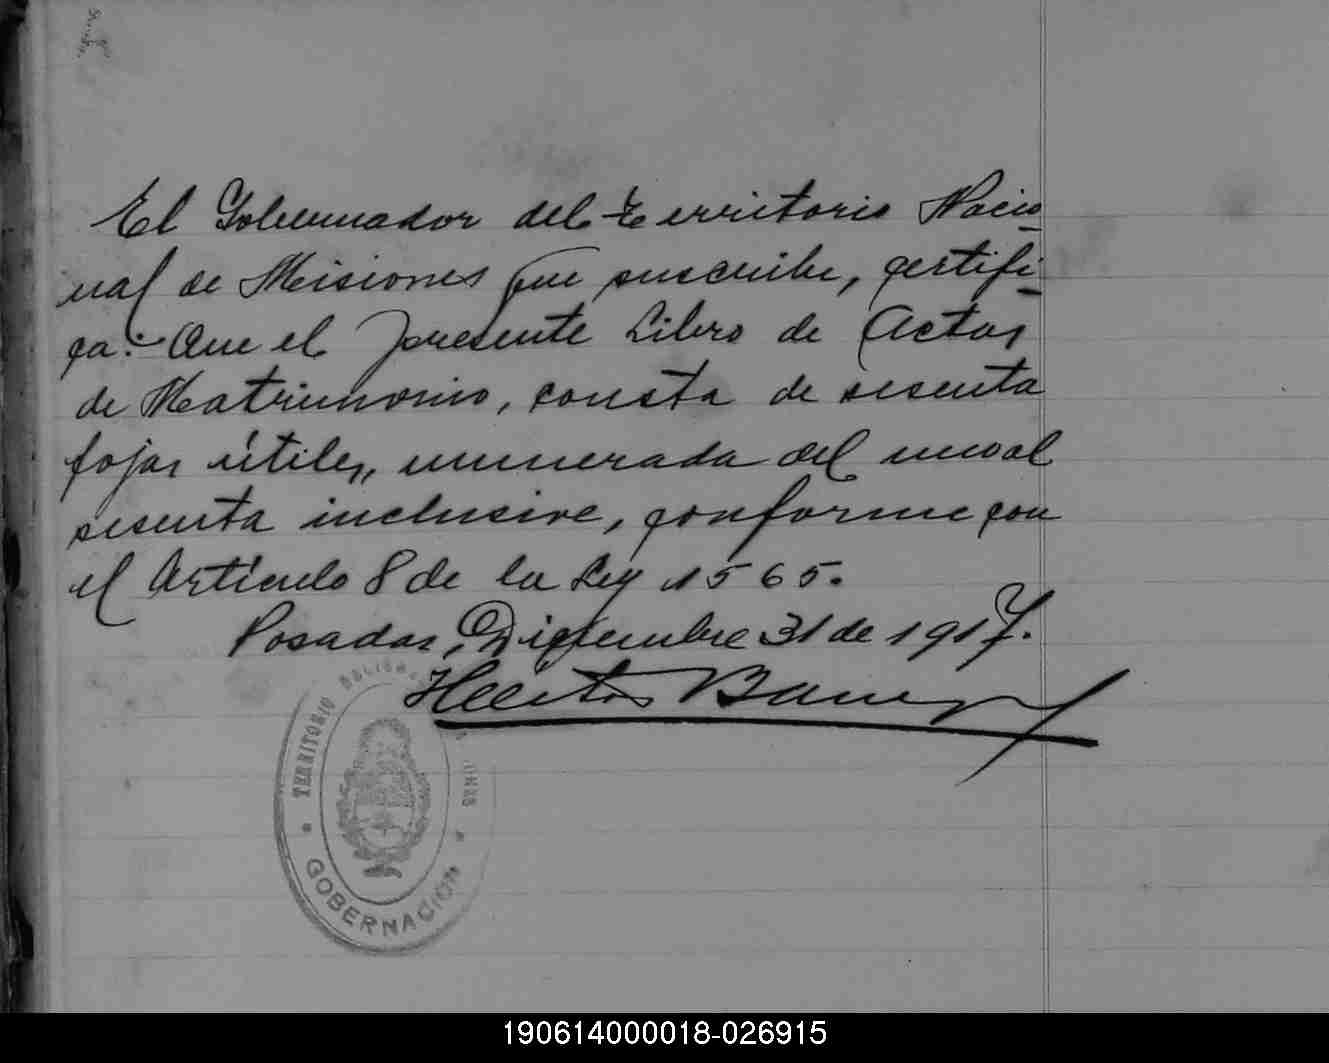 El Gobernador del Territorio Nacio-
nal de Misiones que suscribe, certifi-
ca:- Que el presente Libro de Actas
de Matrimonio, consta de sesenta
fojas útiles, numerada del uno al
sesenta inclusive, conforme con
el Artículo 8 de la Ley 1565.
Posadas, Diciembre 31 de 1917.
Hector Barreyro
TERRITORIO NACIONAL DE MISIONES
GOBERNACION
190614000018-026915